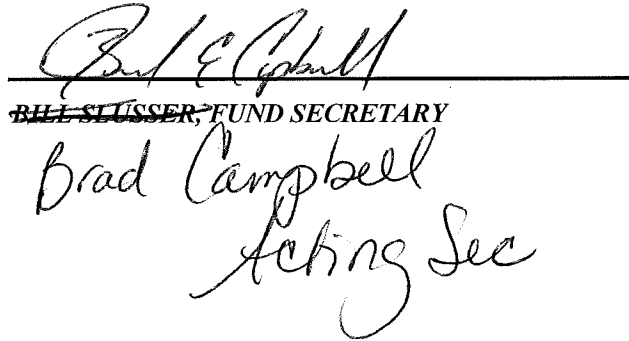 Brad E Campbell
BILL SLUSSER, FUND SECRETARY
Brad Campbell
Acting Sec